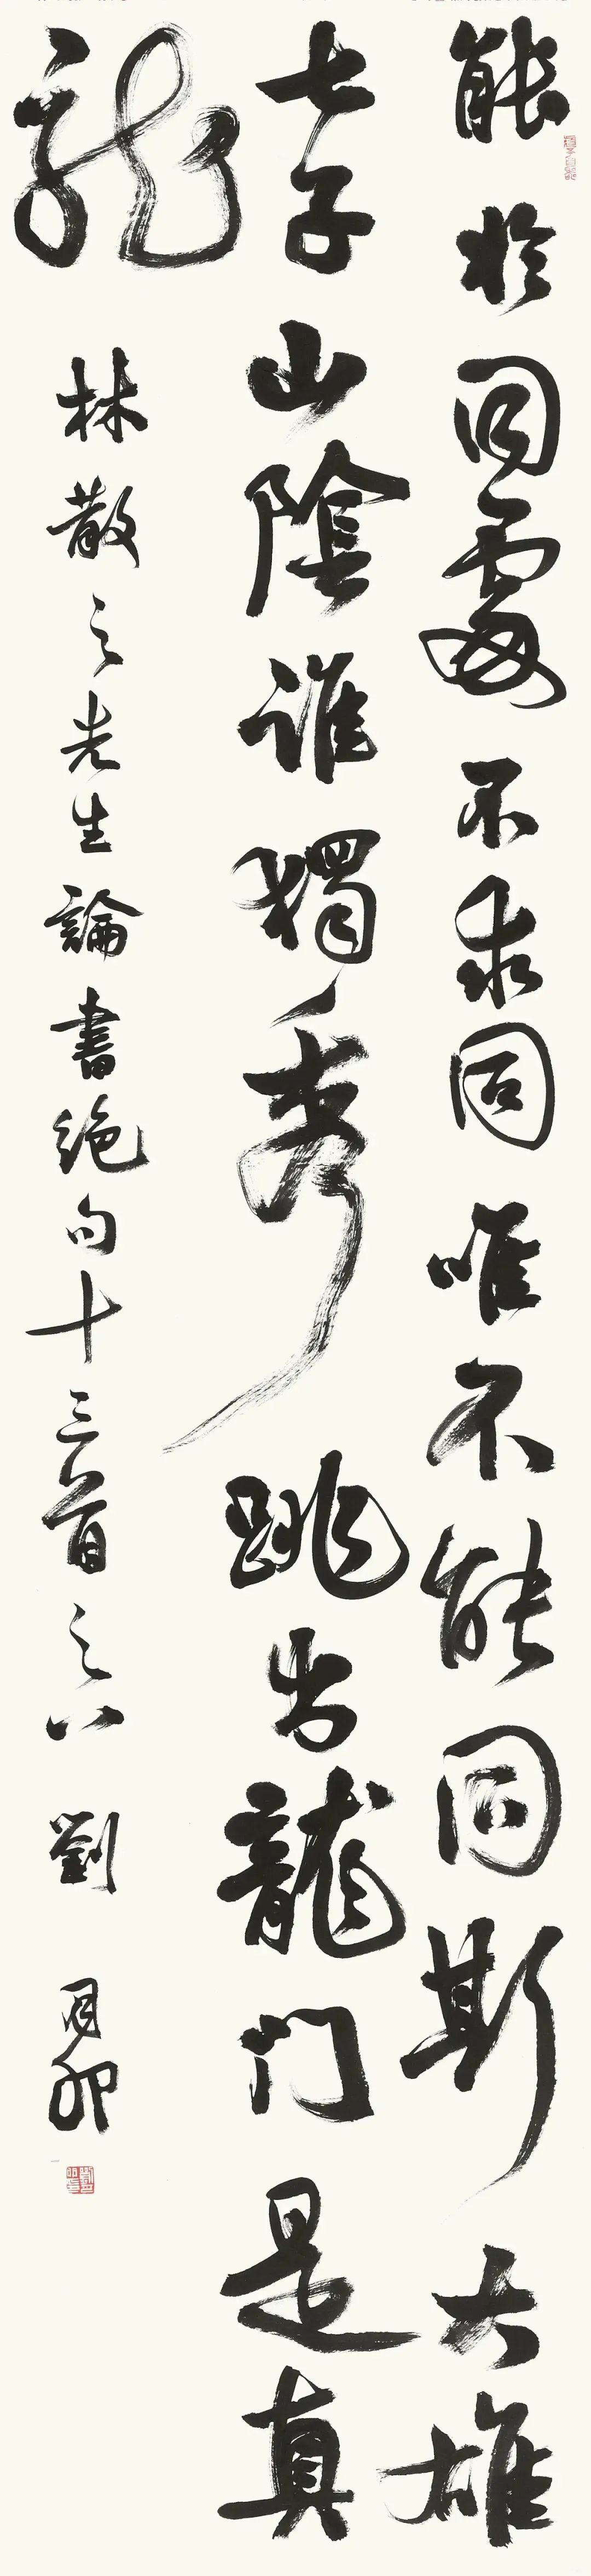 能於同處不求同唯不能同斯大雄
七子山陰誰獨秀跳出龍门是真
龍
林散之先生論書絶句十三首之八劉月卯